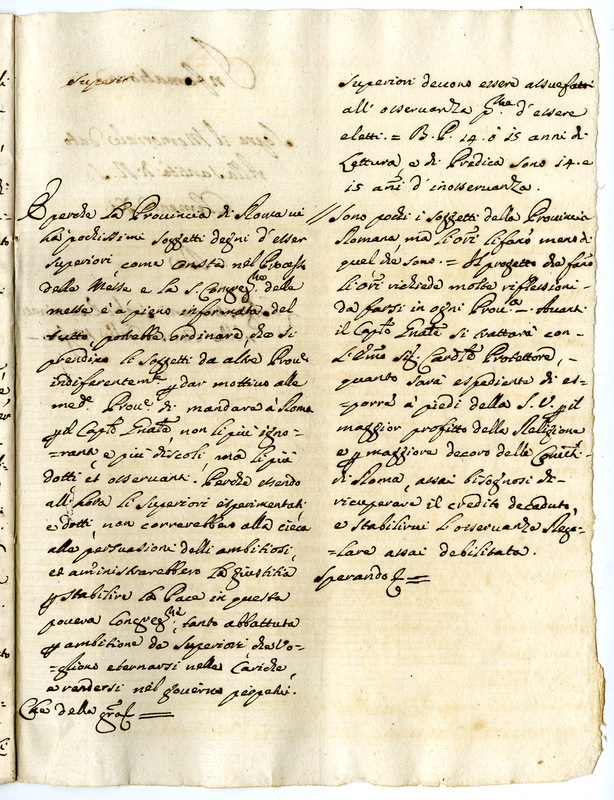 Superiori
E perche la Provincia di Roma vi
hà pochissimi soggetti degni d'esser
Superiori, come consta nel Processo
della Messe e la S. Congreg.ne della
messe è à pieno informata del
tutto, potrebbe ordinare, che si
prendino li soggetti da altre Prov.e
indifferentem.te p dar mottivo alle
med.e Prov.e di mandare à Roma
p il Cap.lo Gnãle, non li più igno=
=ranti e più discoli, ma li più
dotti et osservanti. Perche essendo
all'hora li Superiori esperimentati
e dotti, non correrebbero alla cieca
alle persuasioni delli ambitiosi,
et aministrarebbero la giustitia
p stabilire la Pace in questa
povera Congreg.ne, tanto abbattuta
p ambitione da Superiori, che vo=
=gliono eternarsi nelle Cariche,
e rendersi nel governo perpetui.
Che della gra =
Superiori devono essere assuefatti
all'osservanza p.ma d'essere
eletti. = B. P. 14. ò 15 anni di
Lettura, e di Predica sono 14. e
15 anni d'inosservanza.
// Sono pochi i soggetti della Provincia
Romana, ma li ori li fano meno di
quel che sono. = Il progetto che fano
li ori richiede molte riflessioni
da farsi in ogni Prov.a. Avanti
il Cap.lo Gnãle si trattarà con
l'Emo Sig. Card.le Protettore, =
quanto sarà espediente di es=
=porre à piedi della S. V. p il
maggior profitto della Religione
e p maggiore decoro della
di Roma, assai bisognosi di
ricuperare il credito decaduto,
e stabilirvi l'osservanza Reg=
=lare assai debilitata.
Sperando =